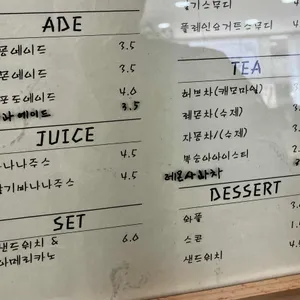 ADE
몬에이드 3.5
에이드 3.5
포도에이드 4.0
라에이드 3.5
JUICE
나나주스 4.5
기바나나주스 4.5
SET
샌드위치 & 6.0
아메리카노
기스무디
플레인요거트스무디
TEA
허브차(캐모마일)
레몬차(수제)
자몽차/(수제)
복숭아아이스티
레몬사과차
DESSERT
와플
스콘
샌드위치 4